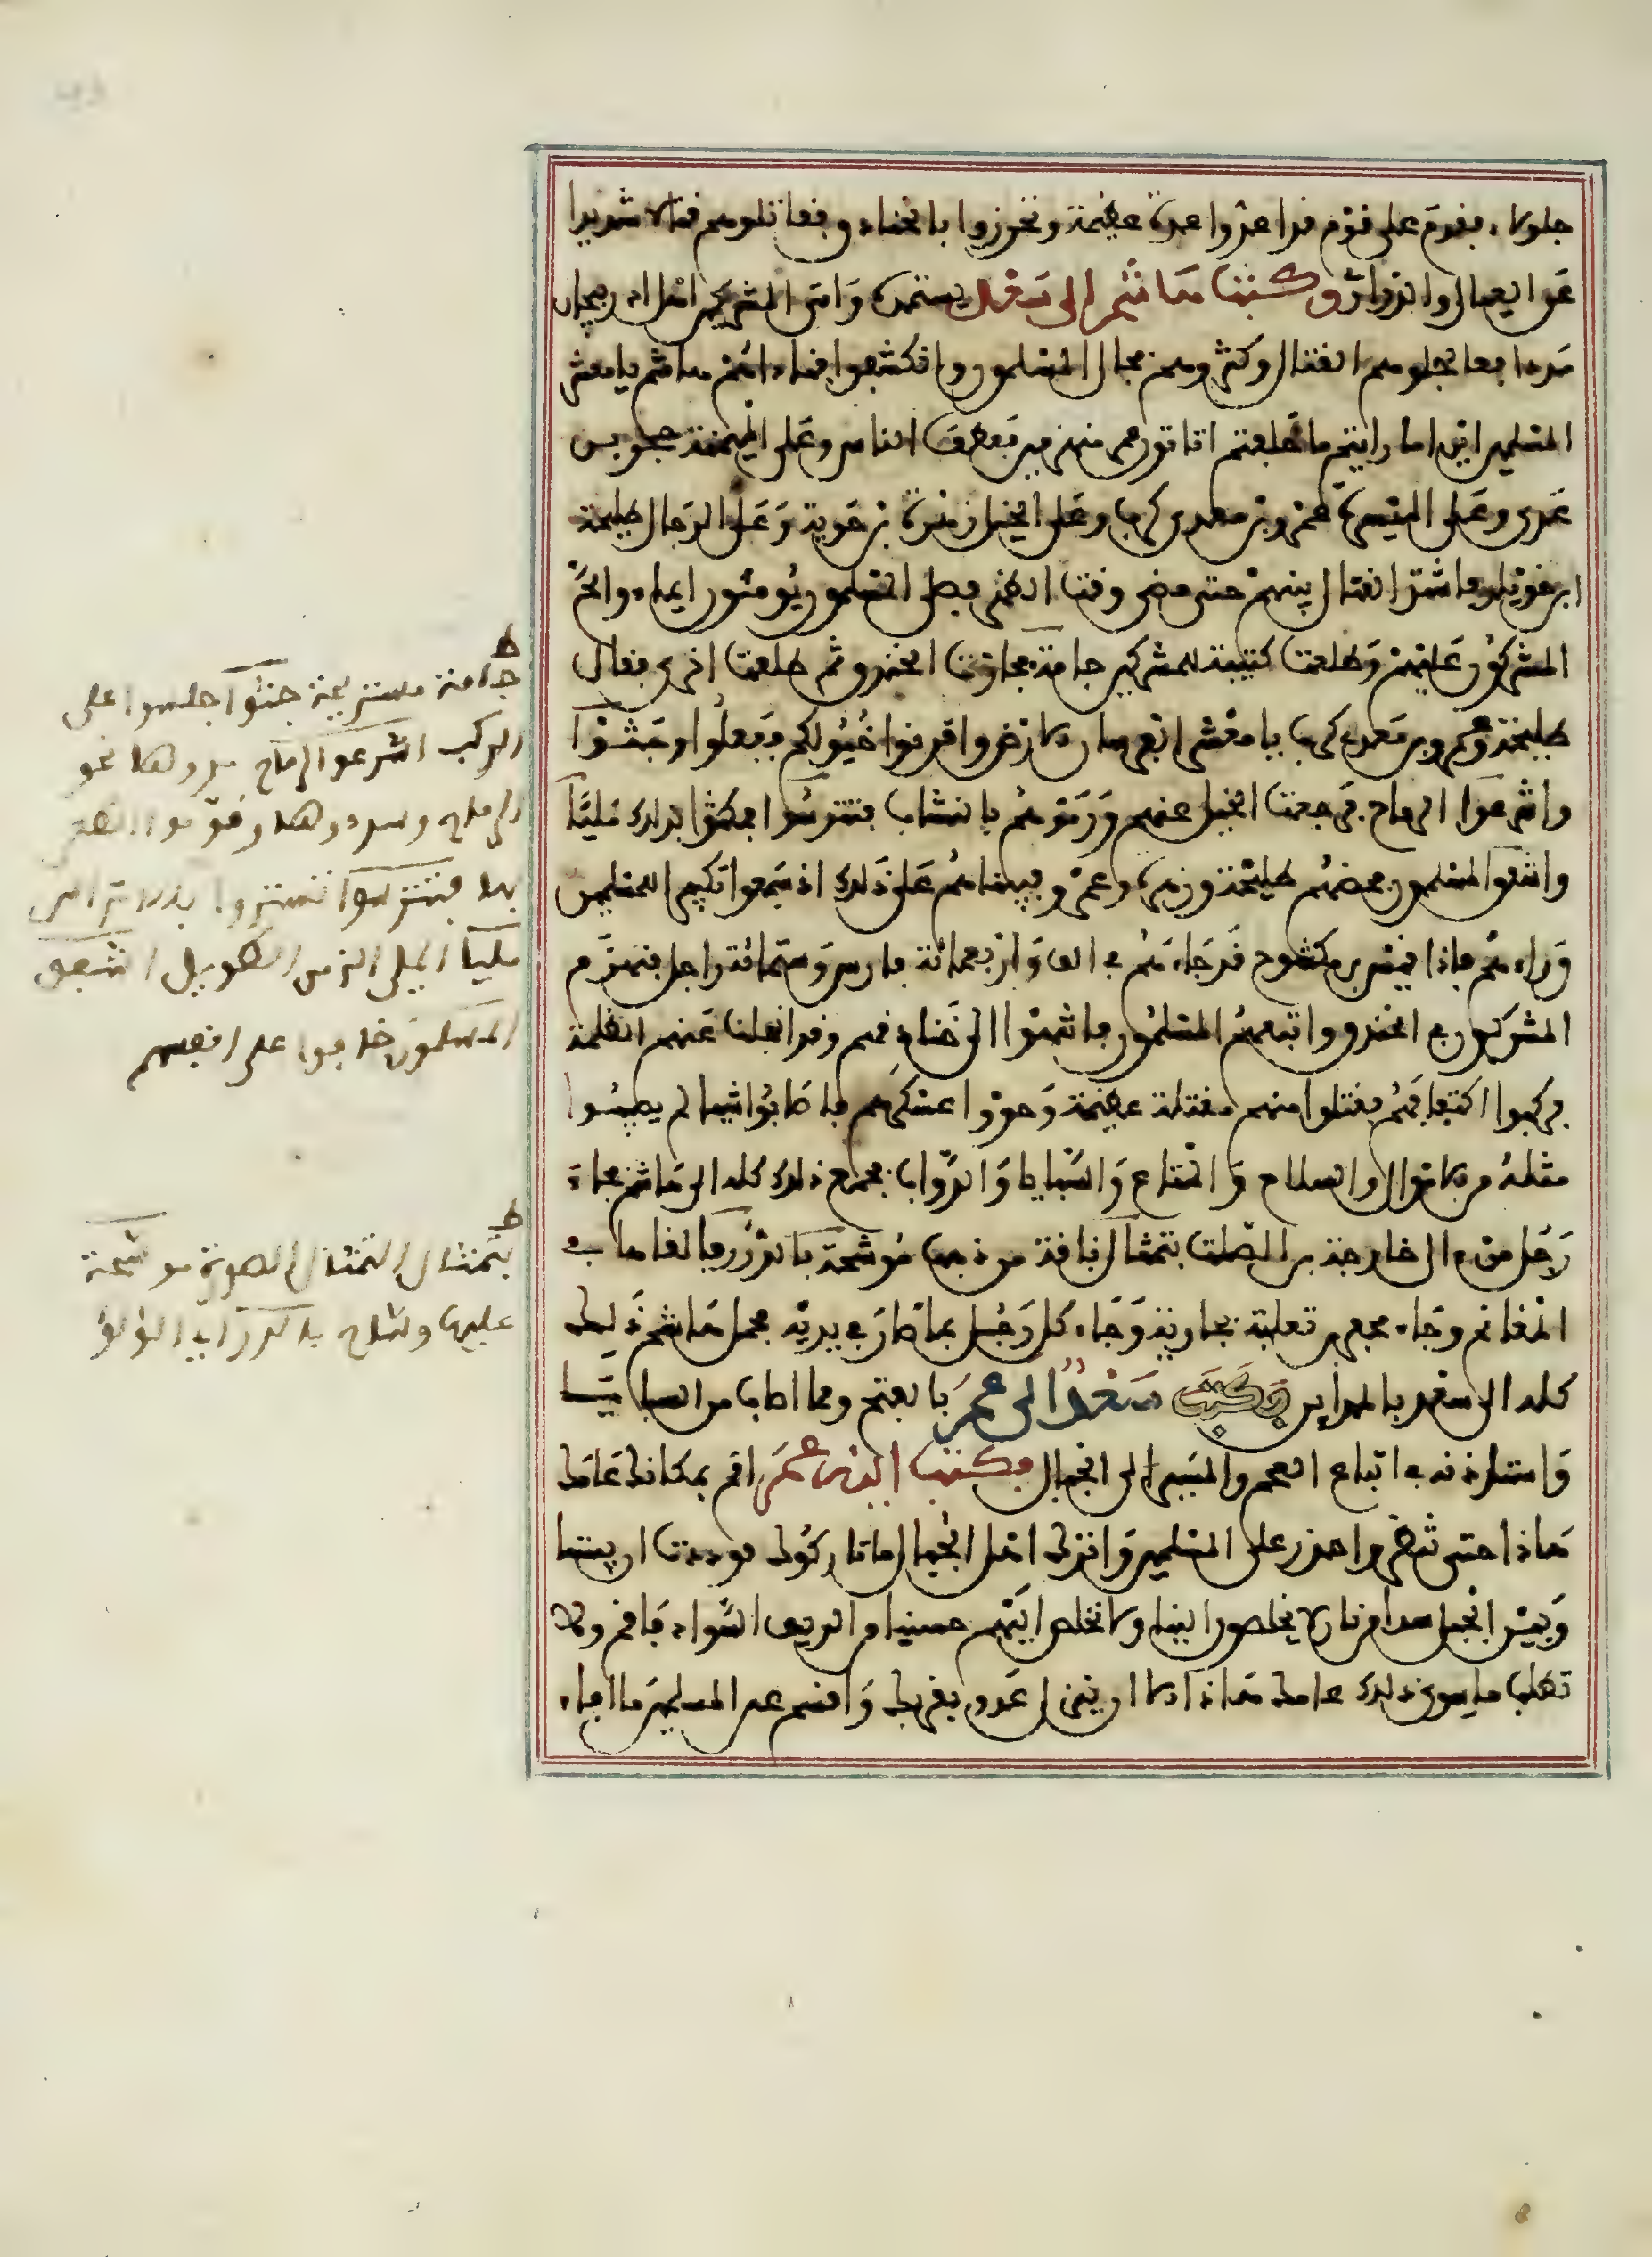 جلولاء فقدم على قوم قد اعدوا عدة عظيمة وتحرزوا بالخنادق فقاتلوهم قتالا شديدا
عن العيال والذراري وكتب هاشم الى سعد يستمده وامد المشركين اهل اذربيجان
مددا فعاجلوهم القتال وكثروهم فجال المسلمون وانكشفوا فناداهم هاشم يا معشر
المسلمين اين اما رايتم ما خلفتم اتاتون عمر منهزمين فعطف الناس وعلى الميمنة حجر بن
عدى وعلى الميسرة عمرو بن معدي كرب وعلى الخيل زهرة بن حوية وعلى الرجال طليحة
ابن خويلد فاشتد القتال بينهم حتى مضى وقت الظهر فصلى المسلمون يومئون ايماء والح
المشركون عليهم وطلعت كتيبة للمشركين جامة فجاوزت الخندق ثم طلعت اخرى فقال
طليحة وعمرو بن معدي كرب يا معشر الفرسان الارض واقرنوا خيولكم ففعلوا وجثوا
واشرعوا الرماح فرجعت الخيل عنهم ورموهم بالنشاب فتترسوا فمكثوا بذلك مليا
واشفق المسلمون بعضهم طليحة وزهرة وعمرو فبيناهم على ذلك اذ سمعوا تكبير المسلمين
وراءهم فاذا قيس بن مكشوح قد جاءهم في الف واربعمائة فارس وستمائة راجل فنهزم
المشركون في الخندق واتبعهم المسلمون فانتهوا الى خنادقهم وقد انجلت عنهم الظلمة
فركبوا اكتافهم فقتلوا منهم مقتلة عظيمة وحووا عسكرهم فاصابوا شيئا لم يصيبوا
مثله من الاموال والسلاح والمتاع والسبايا والدواب فجمع ذلك كله الى هاشم فجاء
رجل من ال خارجة بن الصلت بتمثال ناقة من ذهب موشحة بالدر فالقاها في
المغانم وجاء مجفر بن ثعلبة بجارية وجاء كل رجل بما صار في يديه فحمل هاشم ذلك
كله الى سعد بالمداين وكتب سعد الى عمر بالفتح وما اصاب من السبايا
واستاذنه في اتباع العجم والمسير الى الجبال فكتب اليه عمر اقم بمكانك عامك
هاذا حتى تنظر واحذر على المسلمين واترك اهل الجبال ما تاركوك فوددت ان بيننا
وبين الجبل سدا من نار لا يخلصون الينا ولا نخلص اليهم حسبنا من الريف السواد فاقم ولا
تطلب ما سوى ذلك عامك هاذا الا ان ينزل عدو بقربك واقسم بين المسلمين ما افاء
ط
جامة مستريحة جثوا جلسوا على
الركب اشرعوا الرماح سددوها نحو
بها فتترسوا تستروا بالاتراس
مليا الملي الزمن الطويل اشفق
المسلمون خافوا على انفسهم
ط
بتمثال التمثال الصورة موشحة
عليها وشاح بالدر اي اللؤلؤ